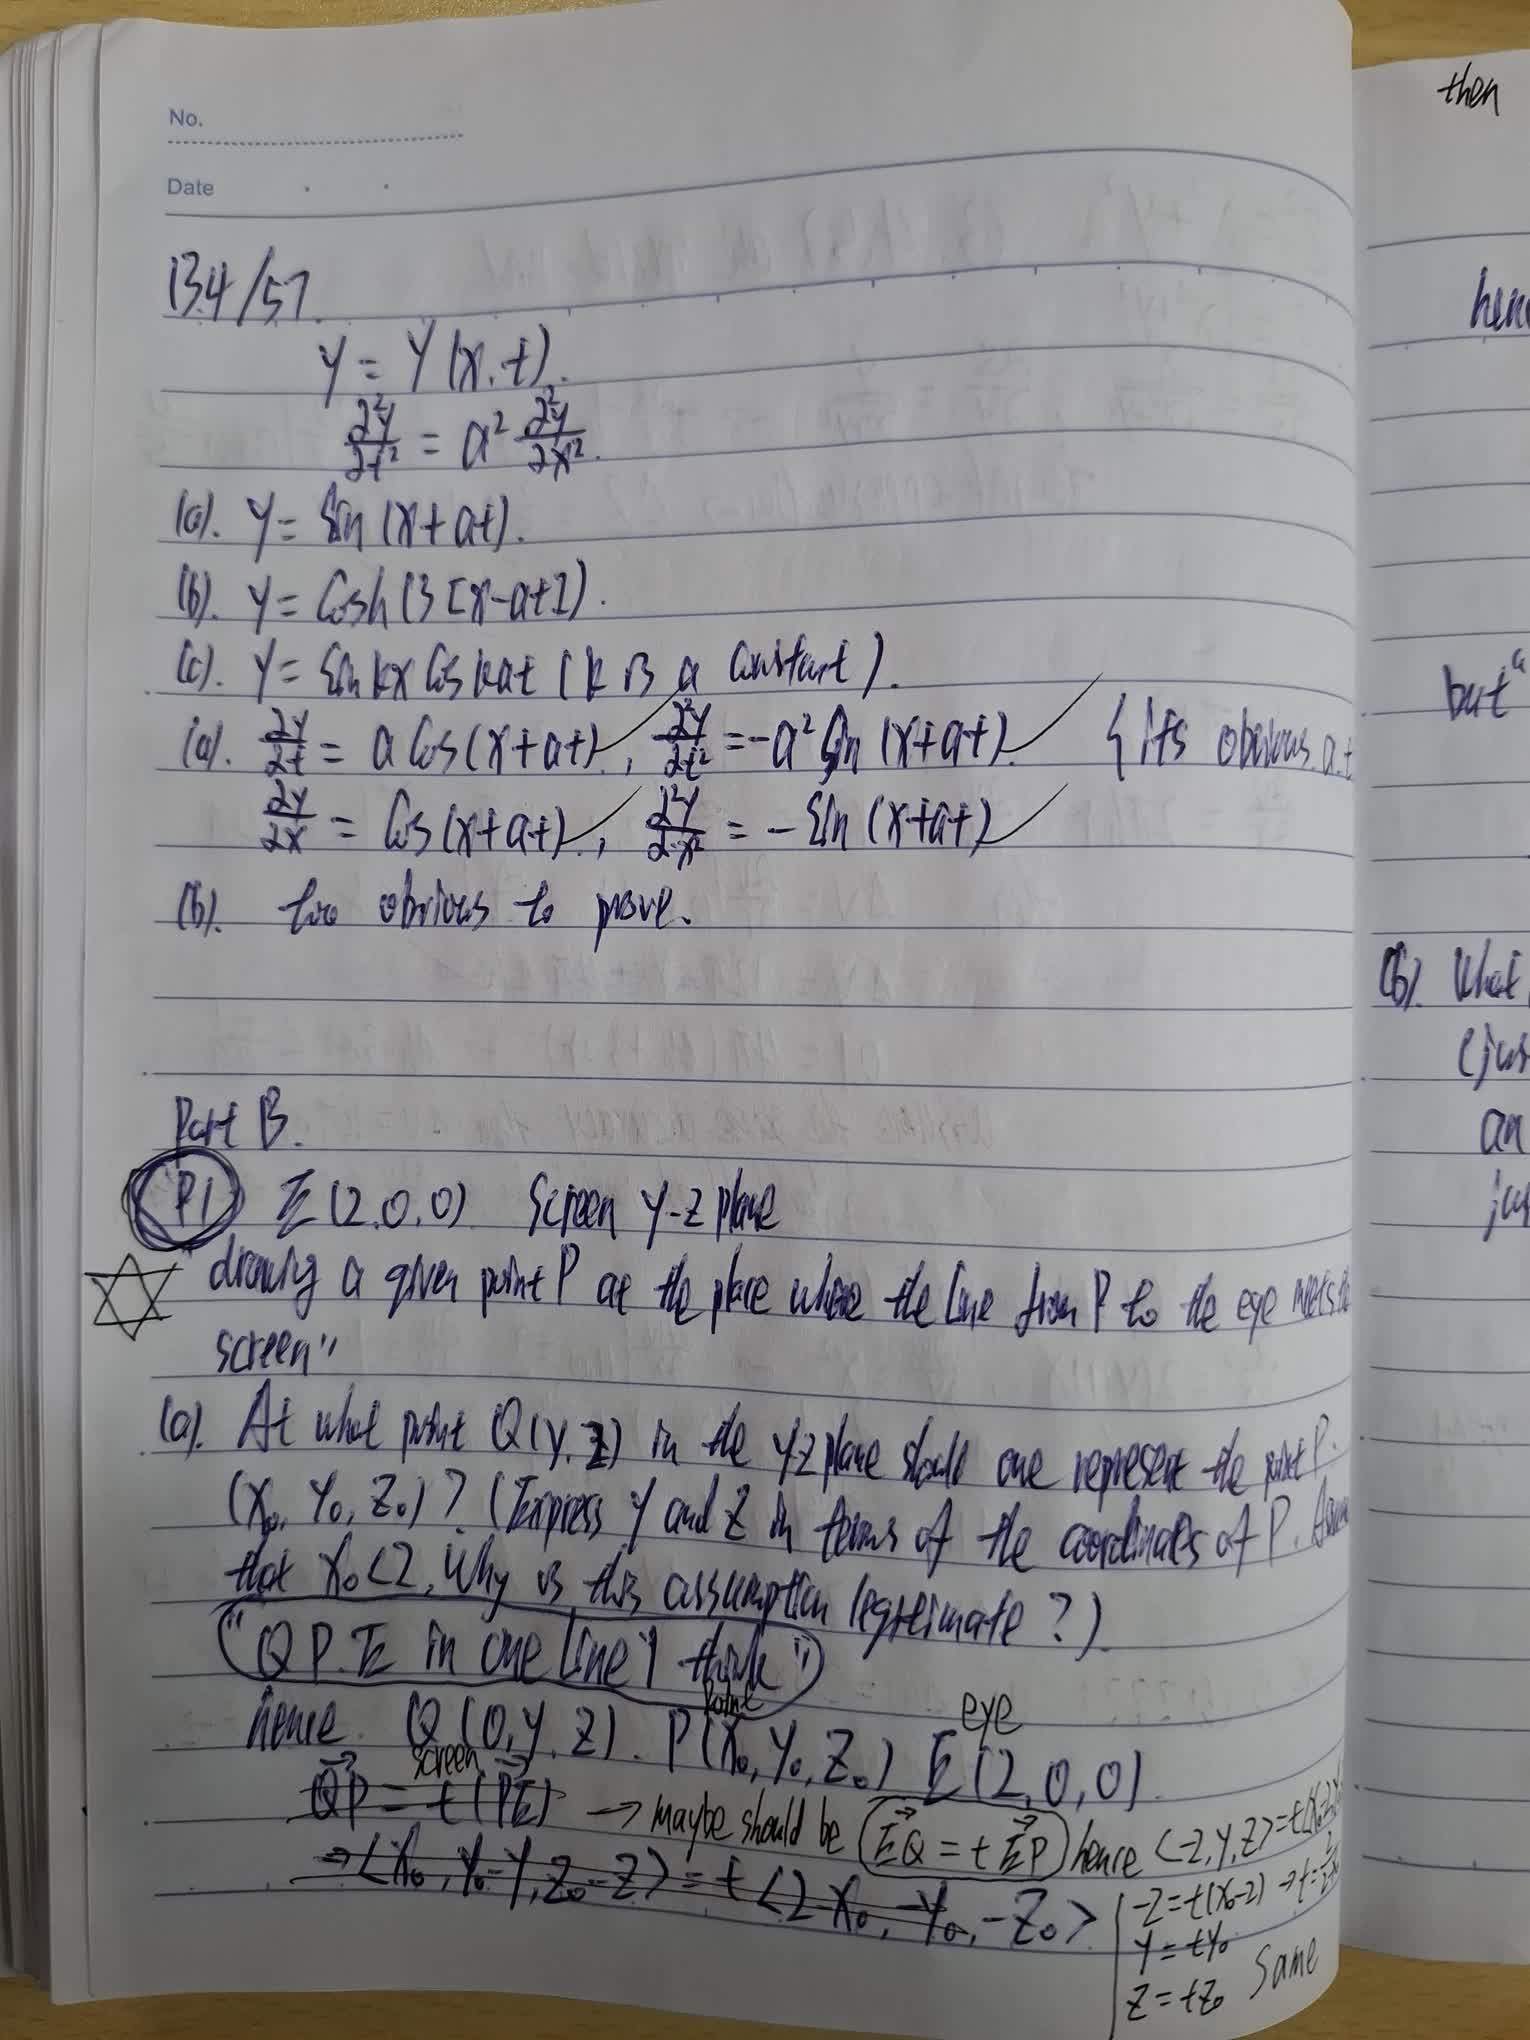 No.
Date
134/57.
y = y(x, t).
∂²y/∂t² = a² ∂²y/∂x².
(a). y = sin (x + at).
(b). y = cosh (3[x-at]).
(c). y = sin kx cos kat (k is a constant).
(a). ∂y/∂t = a cos (x+at), ∂²y/∂t² = -a² sin (x+at). { its obvious a.t
∂y/∂x = cos (x+at), ∂²y/∂x² = - sin (x+at)
(b). too obvious to prove.
Part B.
P1 E(2,0,0) screen y-z plane
"drawing a given point P at the place where the line from P to the eye meets the
screen"
(a). At what point Q(y,z) in the yz plane should one represent the point P.
(x₀, y₀, z₀)? (Express y and z in terms of the coordinates of P. Assume
that x₀<2, Why is this assumption legitimate?)
"Q P. E in one line I think"
hence. Q(0,y,z). P(x₀,y₀,z₀) E(2,0,0)
screen point eye
QP = t(PE) → maybe should be (EQ = t EP) hence <-2,y,z> = t<x₀-2,y
⇒<x₀, y₀-y, z₀-z> = t<2-x₀, -y₀, -z₀>
-2=t(x₀-2) → t=2/2-x₀
y=ty₀
z=tz₀ same
then
hen
but
(b). What
(jus
an
jus